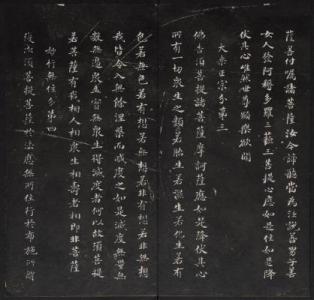 薩善付囑諸菩薩汝今諦聽當為汝說善男子善
女人發阿耨多羅三藐三菩提心應如是住如是降
伏其心唯然世尊願樂欲聞
大乘正宗分第三
佛告須菩提諸菩薩摩訶薩應如是降伏其心
所有一切眾生之類若卵生若胎生若濕生若化生若有
色若無色若有想若無想若非有想若非無想
我皆令入無餘涅槃而滅度之如是滅度無量無
數無邊眾生實無眾生得滅度者何以故須菩提
若菩薩有我相人相眾生相壽者相即非菩薩
妙行無住分第四
復次須菩提菩薩於法應無所住行於布施所謂